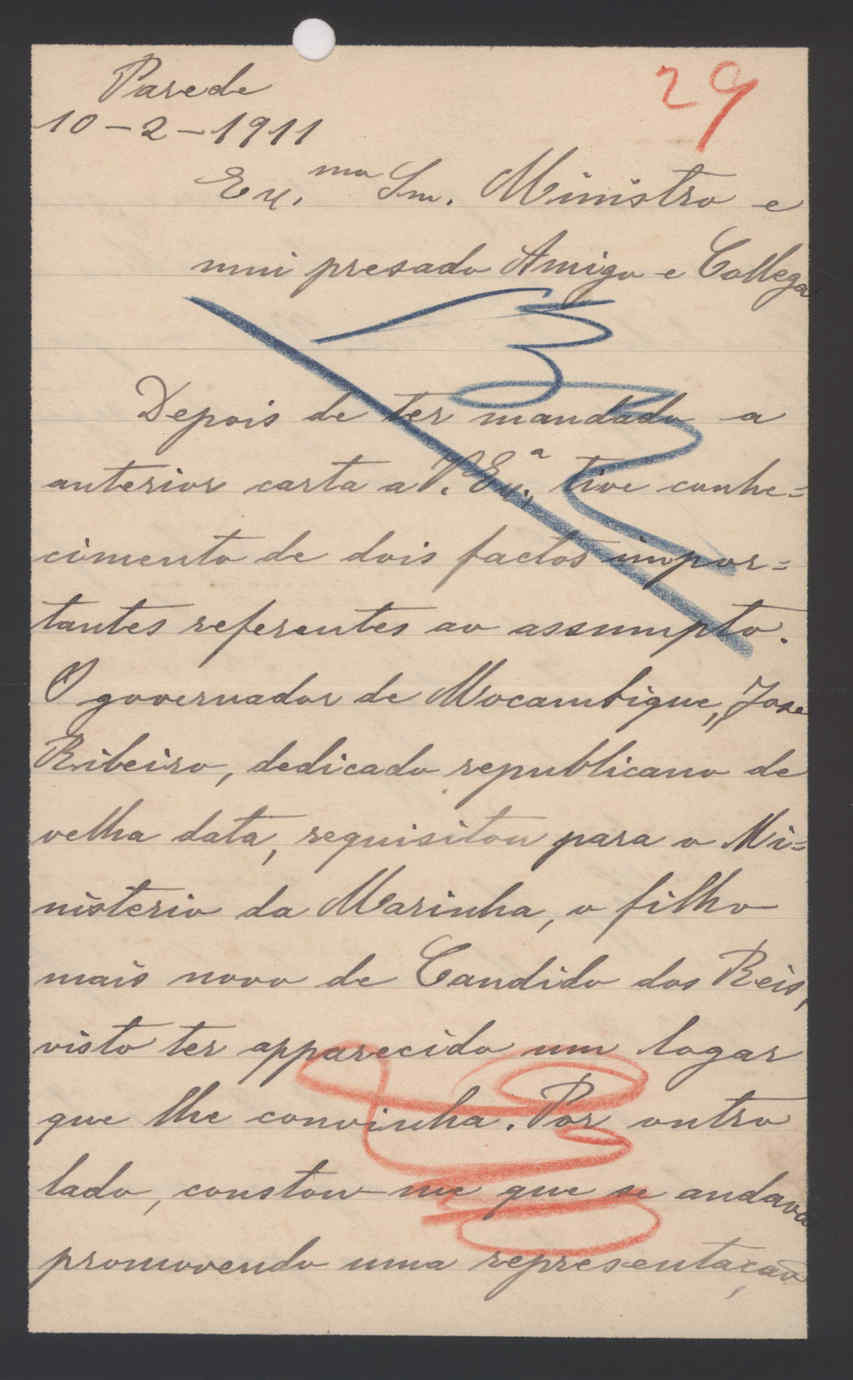 Parede
29
10-2-1911
Ex.mo Snr. Ministro e
mui presado Amigo e Collega
Depois de ter mandado a
anterior carta a V. Ex.ª, tive conhe=
cimento de dois factos impor=
tantes referentes ao assumpto.
O governador de Mocambique, José
Ribeiro, dedicado republicano de
velha data, requisitou para o Mi=
nisterio da Marinha, o filho
mais novo de Candido dos Reis,
visto ter apparecido um logar
que lhe convinha. Por outro
lado, constou-me que se andava
promovendo uma representação